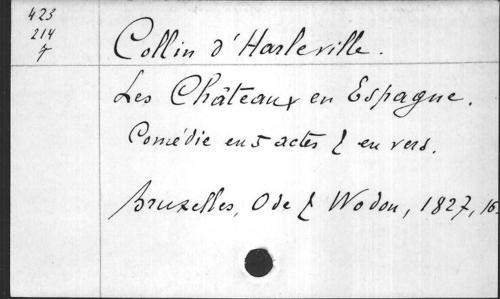 423
214
7
Collin d'Harleville.
Les Châteaux en Espagne.
Comédie en 5 actes & en vers.
Bruxelles, Ode & Wodon, 1827, 16